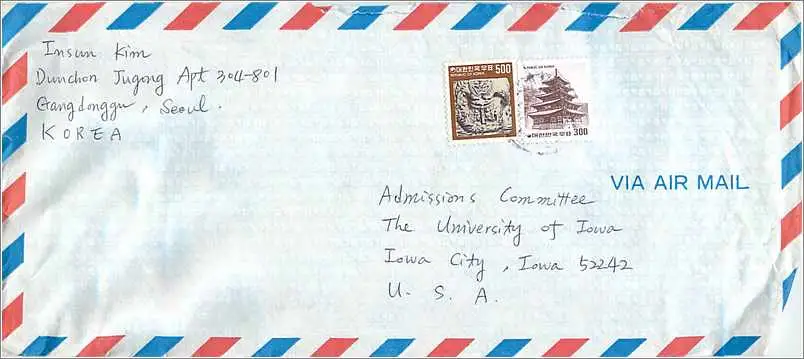 Insun Kim
Dunchon Jugong Apt 304-801
Gangdonggu, Seoul.
KOREA
대한민국우표 500
REPUBLIC OF KOREA
REPUBLIC OF KOREA
대한민국우표 300
VIA AIR MAIL
Admissions Committee
The University of Iowa
Iowa City, Iowa 52242
U. S. A.